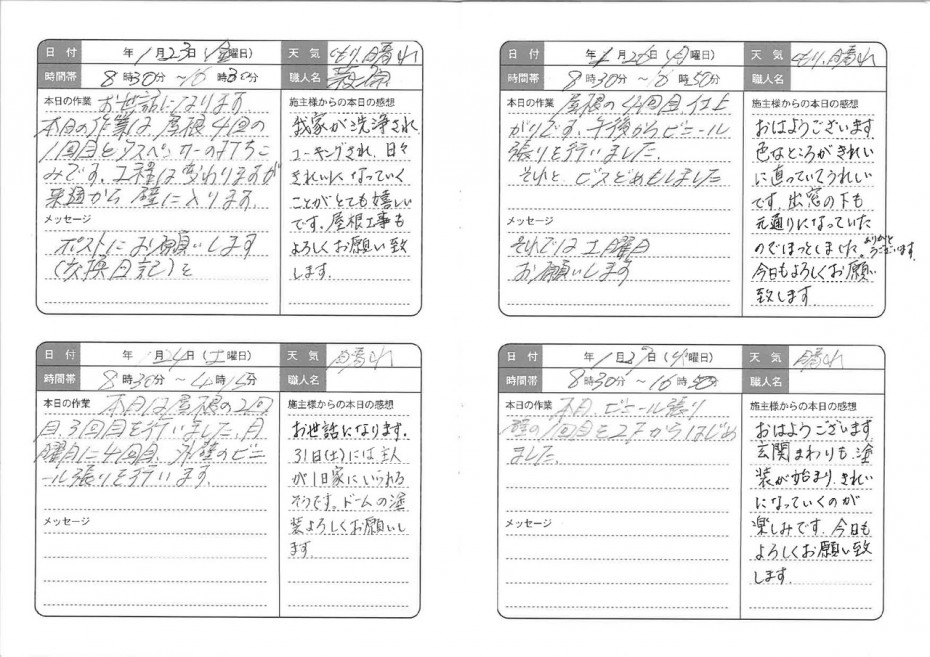 日付 年 1月23日(金曜日) 天気 くもり、晴れ
時間帯 8時30分 ~16時30分 職人名
本日の作業 お世話になります
本日の作業は、屋根4回の
1回目とタスペーサーの打ちこ
みです。工程は変わりますが
来週から壁に入ります。
メッセージ
ポストにお願いします
(交換日記)を
施主様からの本日の感想
我家が洗浄され
コーキングされ、日々
きれいになっていく
ことがとても嬉しい
です。屋根工事も
よろしくお願い致
します。
日付 年 1月24日(土曜日) 天気 晴れ
時間帯 8時30分 ~4時15分 職人名
本日の作業 本日は屋根の2回
目、3回目を行いました。月
曜日に4回目、外壁のビニ
ール張りを行います。
メッセージ
施主様からの本日の感想
お世話になります。
31日(土)には主人
が1日家にいられる
そうです。ドームの塗
装よろしくお願いし
ます。
日付 年 1月26日(月曜日) 天気 くもり、晴れ
時間帯 8時30分 ~16時50分 職人名
本日の作業 屋根の4回目仕上
がりです。午後からビニール
張りを行いました。
それと、ビスどめもしました
メッセージ
それでは土曜日
お願いします
施主様からの本日の感想
おはようございます
色なところがきれい
に直っていてうれしい
です。出窓の下も
元通りになっていた
のでほっとしました。ありがと
うございます。
今日もよろしくお願い
致します。
日付 年 1月27日(火曜日) 天気 晴れ
時間帯 8時30分 ~16時50分 職人名
本日の作業 本日、ビニール張り
壁の1回目を2Fからはじめ
ました。
メッセージ
施主様からの本日の感想
おはようございます
玄関まわりも、塗
装が始まり、きれい
になっていくのが
楽しみです。今日も
よろしくお願い致
します。